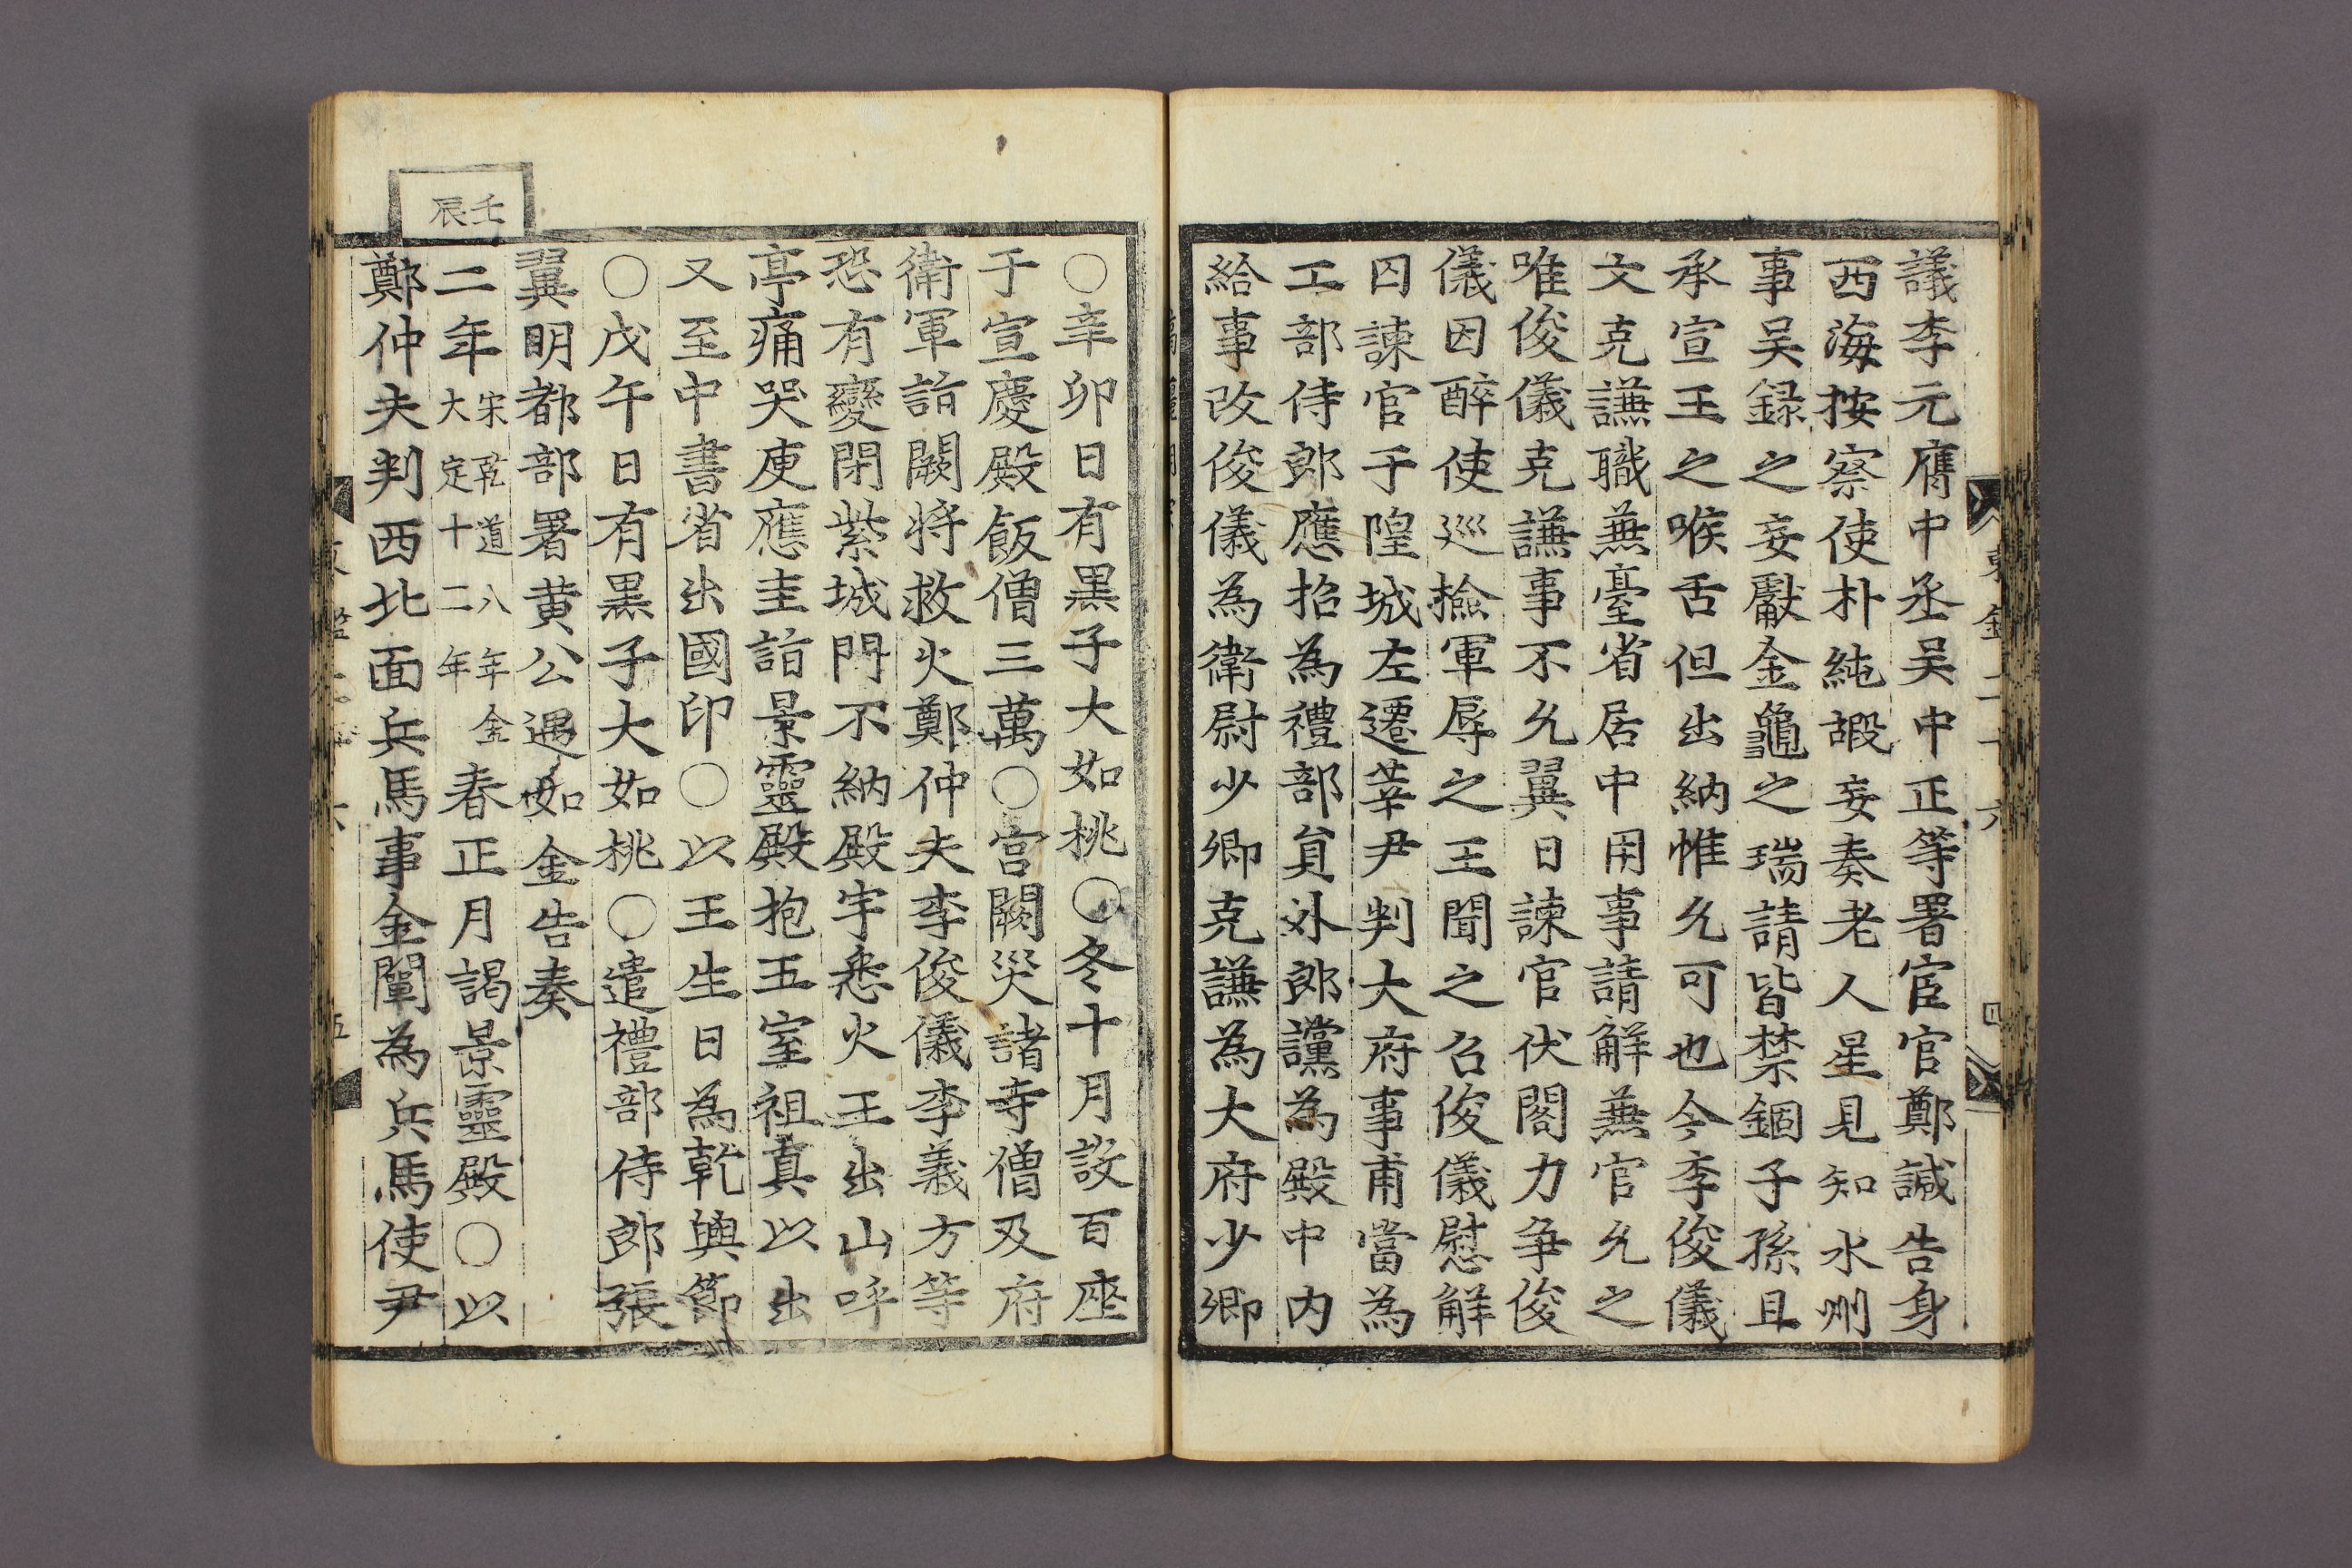 議李元膺中丞吴中正等署宦官鄭諴告身
西海按察使朴純嘏妄奏老人星見知水州
事吴録之妄獻金龜之瑞請皆禁錮子孫且
承宣王之喉舌但出納惟允可也今李俊儀
文克謙職兼臺省居中用事請解兼官允之
唯俊儀克謙事不允翼日諫官伏閤力争俊
儀因醉使巡撿軍辱之王聞之召俊儀慰解
囚諫官于隍城左遷莘尹判大府事甫當為
工部侍郎應招為禮部貟外郎讜為殿中内
給事改俊儀為衛尉少卿克謙為大府少卿
○辛卯日有黒子大如桃○冬十月設百座
于宣慶殿飯僧三萬○宫闕災諸寺僧及府
衛軍詣闕将救火鄭仲夫李俊儀李義方等
恐有變閉紫城門不納殿宇悉火王出山呼
亭痛哭庾應圭詣景靈殿抱五室祖真以出
又至中書省出國印○以王生日為乾興節
○戊午日有黒子大如桃○遣禮部侍郎張
翼明都部署黄公遇如金告奏
壬辰
二年宋乾道八年金大定十二年春正月謁景靈殿○以
鄭仲夫判西北面兵馬事金闡為兵馬使尹